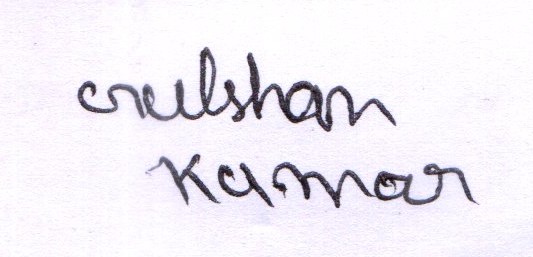 Gulshan
Kumar